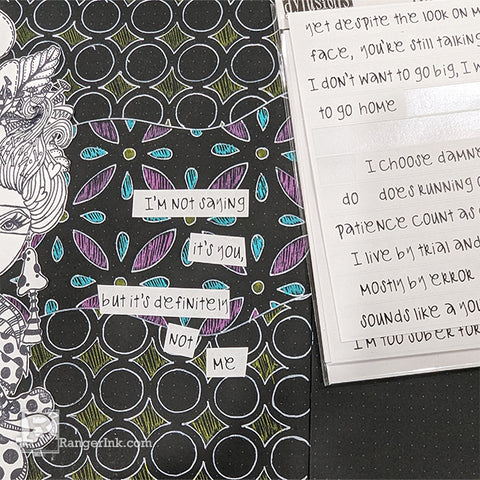 I'm not saying
it's you,
but it's definitely
not
me
yet despite the look on m
face, you're still talking
I don't want to go big, I w
to go home
I choose damne
do does running
patience count as
I live by trial and
mostly by error
sounds like a you
I'm too sober for
RangerInk.com